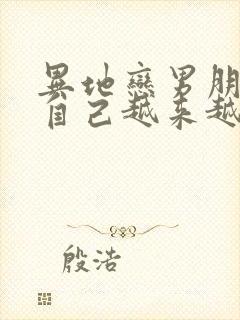 異地戀男朋
自己越来越
殷浩